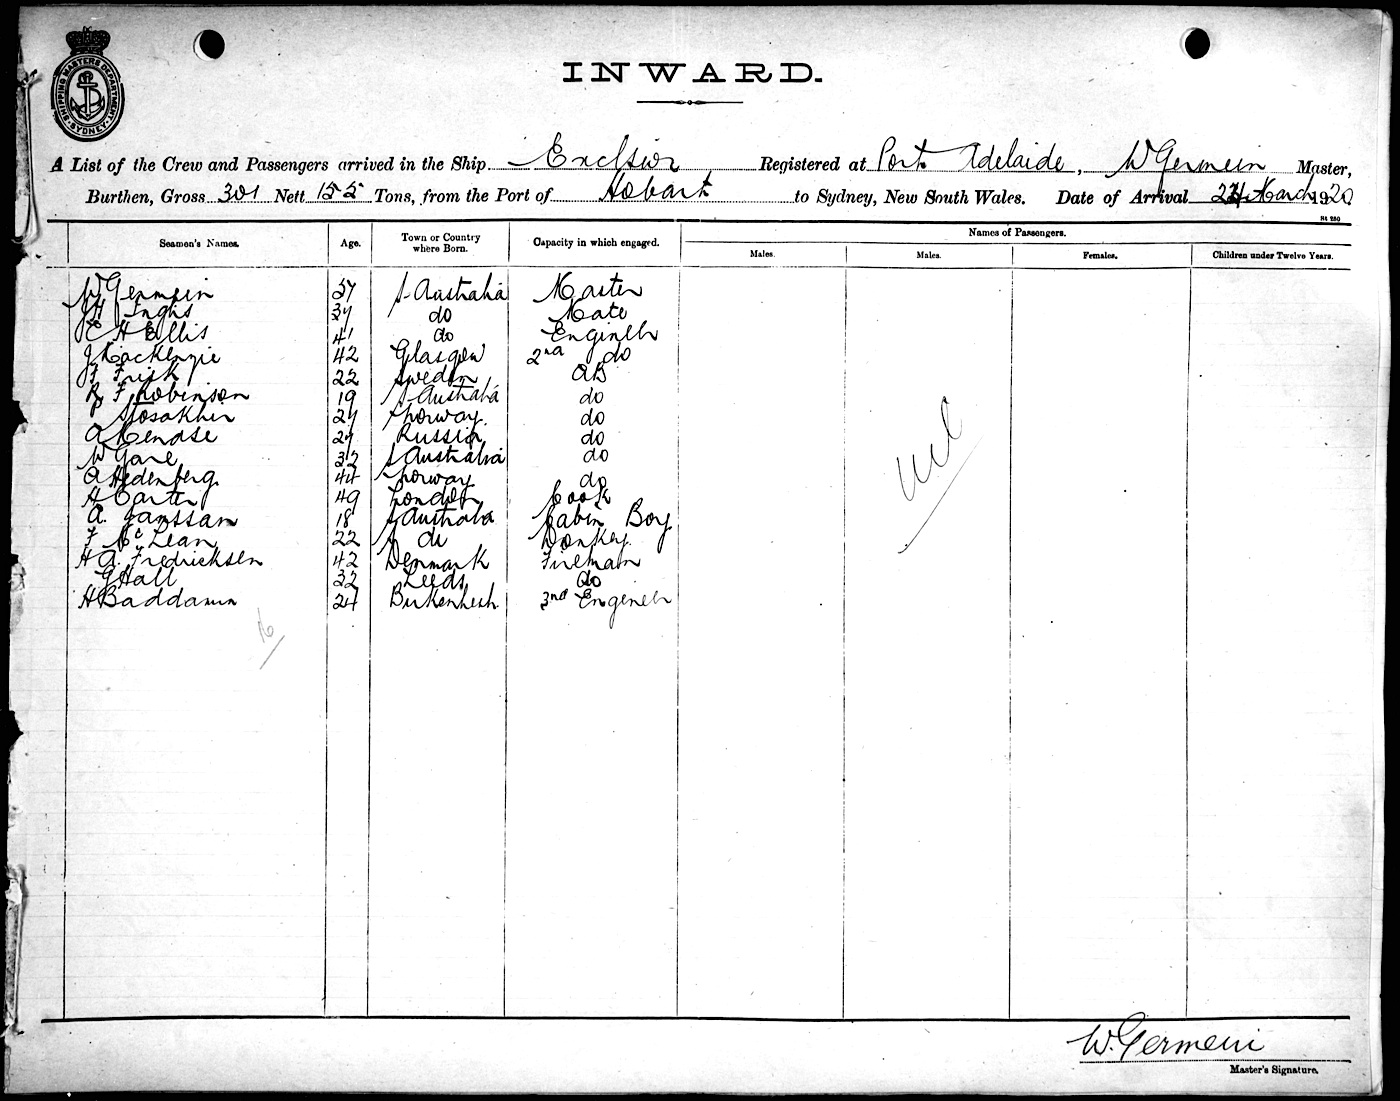 SHIPPING MASTERS DEPARTMENT
SYDNEY
INWARD.
A List of the Crew and Passengers arrived in the Ship Excelsior Registered at Port Adelaide, W Germein Master,
Burthen, Gross 301 Nett 155 Tons, from the Port of Hobart to Sydney, New South Wales. Date of Arrival March 1920
St 250
Seamen's Names. Age. Town or Country where Born. Capacity in which engaged. Names of Passengers.
Males. Males. Females. Children under Twelve Years.
W Germein 57 S Australia Master
Inglis do Mate
E H Ellis 41 do Engineer
J Mackenzie 42 Glasgow 2nd do
F Frisk 22 Sweden AB
R F Robinson 19 S Australia do
P Norway do
A Russia do
W Gare 32 S Australia do
A Hedenberg 44 Norway do
H Carter 49 London Cook
A. Janssan 18 S Australia Cabin Boy
F McLean 22 do Donkey
H A Fredricksen 42 Denmark Fireman
G Hall 32 Leeds do
H Baddams 24 Birkenhead 3rd Engineer
16
nil
W. Germein
Master's Signature.